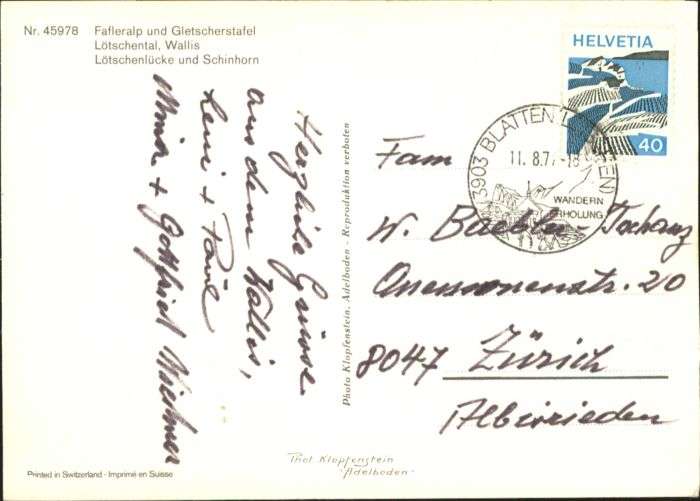 Nr. 45978 Fafleralp und Gletscherstafel
Lötschental, Wallis
Lötschenlücke und Schinhorn
Herzliche Grüsse
aus dem Wallis,
Leni + Paul
+ Gottfried
Photo Klopfenstein, Adelboden - Reproduktion verboten
HELVETIA
40
3903 BLATTEN
11. 8.7 -18
WANDERN
ERHOLUNG
Fam
W. Baebler-Tschanz
20
8047 Zürich
Albisrieden
Thol Klopfenstein
"Adelboden"
Printed in Switzerland - Imprimé en Suisse